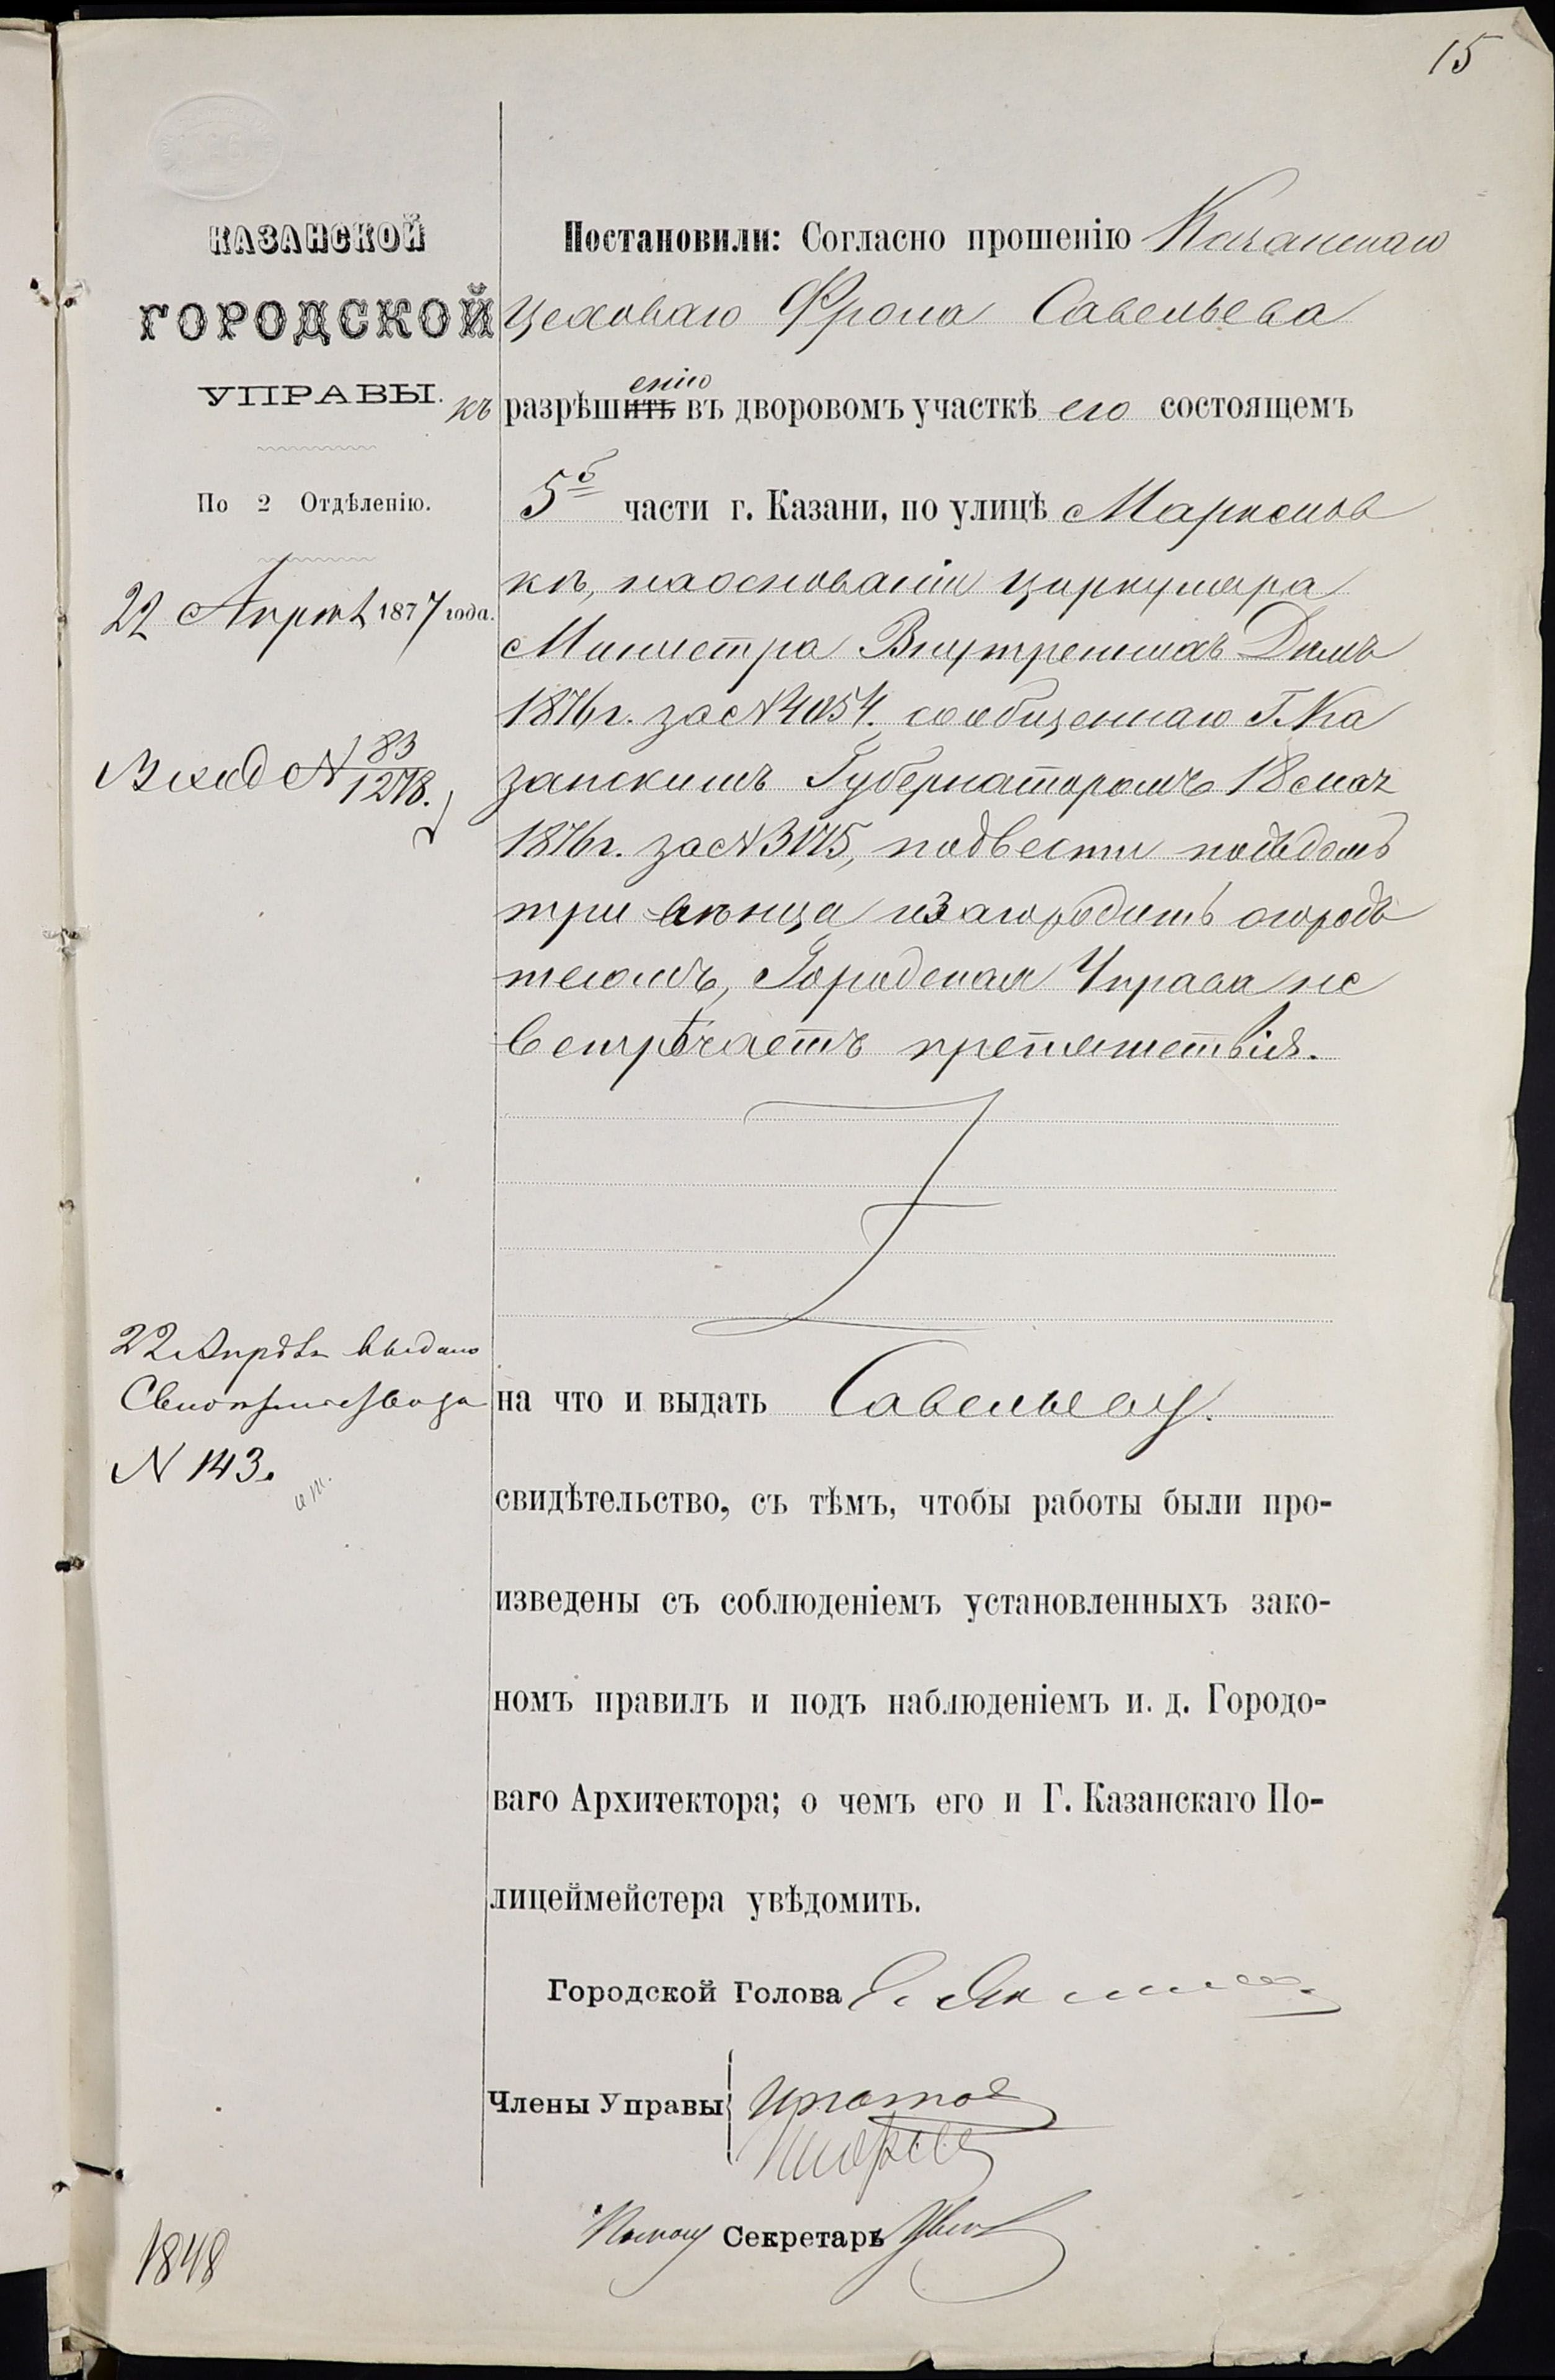 15
КАЗАНСКОЙ
ГОРОДСКОЙ
УПРАВЫ.
По 2 Отдѣленію.
22 Апрѣля 1877 года.
Вход № 83
1278.
22 Апрѣля выдано
Свидѣтельство за
N 143.
1848
Постановили: Согласно прошенію Казанскаго
Цеховаго Фрола Савельева
къ разрѣшить енію въ дворовомъ участкѣ его состоящемъ
5й части г. Казани, по улицѣ Марковк
къ, на основаніи циркуляра
Министра Внутреннихъ Делъ
1876 г. за № 4054. сообщеннаго Г. Ка
занскимъ Губернаторомъ 18 мая
1876 г. за № 3175, подвести подъ домъ
три вѣнца и загородить огородъ
тесомъ, Городская Управа не
встрѣчаетъ препятствія.
на что и выдать Савельеву.
свидѣтельство, съ тѣмъ, чтобы работы были про-
изведены съ соблюденіемъ установленныхъ зако-
номъ правилъ и подъ наблюденіемъ и. д. Городо-
ваго Архитектора; о чемъ его и Г. Казанскаго По-
лицеймейстера увѣдомить.
Городской Голова
Члены Управы
Помощ Секретарь